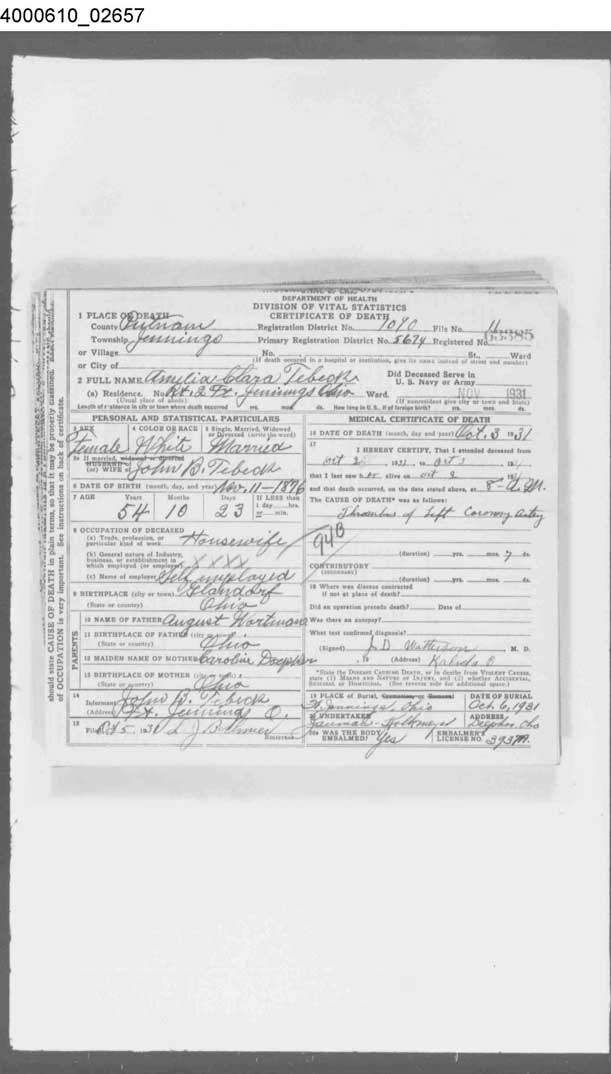 4000610_02657
DEPARTMENT OF HEALTH
DIVISION OF VITAL STATISTICS
CERTIFICATE OF DEATH
1 PLACE OF DEATH
County Putnam Registration District No. 1090 File No.
Township Jennings Primary Registration District No. 5674 Registered No.
or Village No. St., Ward
(If death occurred in a hospital or institution, give its name instead of street and number)
or City of
2 FULL NAME Amelia Clara Tebeck
Did Deceased Serve in
U. S. Navy or Army
(a) Residence. No. Rt. 2 Ft. Jennings Ohio Ward. NOV 1931
(Usual place of abode) (If nonresident give city or town and State)
Length of residence in city or town where death occurred yrs. mos. ds. How long in U. S., if of foreign birth? yrs. mos. ds.
PERSONAL AND STATISTICAL PARTICULARS
3 SEX 4 COLOR OR RACE 5 Single, Married, Widowed
or Divorced (write the word)
Female White Married
5a If married, widowed or divorced
HUSBAND of
(or) WIFE of John B. Tebeck
6 DATE OF BIRTH (month, day, and year) Nov. 11-1876
7 AGE Years Months Days If LESS than
1 day hrs.
or min.
54 10 23
8 OCCUPATION OF DECEASED
(a) Trade, profession, or
particular kind of work Housewife
(b) General nature of Industry,
business, or establishment in
which employed (or employer) XXXX
(c) Name of employer Self employed
9 BIRTHPLACE (city or town) Glandorf
(State or country) Ohio
PARENTS
10 NAME OF FATHER August Wortmann
11 BIRTHPLACE OF FATHER (city or town)
(State or country) Ohio
12 MAIDEN NAME OF MOTHER Caroline Doepker
13 BIRTHPLACE OF MOTHER (city or town)
(State or country) Ohio
14
Informant John B. Tebeck
(Address) Ft. Jennings O.
15
Filed Oct 5, 1931 L J
Registrar
MEDICAL CERTIFICATE OF DEATH
16 DATE OF DEATH (month, day and year) Oct. 3 1931
17
I HEREBY CERTIFY, That I attended deceased from
Oct 2, 1931, to Oct 3, 1931
that I last saw her alive on Oct 2, 1931
and that death occurred, on the date stated above, at 8- A.M.
The CAUSE OF DEATH* was as follows:
Thrombus of Left Coronary Artery
94B
(duration) yrs. mos. 7 ds.
CONTRIBUTORY
(SECONDARY)
(duration) yrs. mos. ds.
18 Where was disease contracted
if not at place of death?
Did an operation precede death? Date of
Was there an autopsy?
What test confirmed diagnosis?
(Signed) J. D. Watterson M. D.
, 19 (Address) Kalida O
*State the Disease Causing Death, or in deaths from Violent Causes,
state (1) Means and Nature of Injury, and (2) whether Accidental,
Suicidal or Homicidal. (See reverse side for additional space.)
19 PLACE of Burial, Cremation, or Removal DATE OF BURIAL
Ft Jennings, Ohio Oct. 6, 1931
20 UNDERTAKER ADDRESS
Delphos, Oho
20a WAS THE BODY
EMBALMED? Yes
EMBALMER'S
LICENSE NO. 3937A.
should state CAUSE OF DEATH in plain terms, so that it may be properly classified. Exact
of OCCUPATION is very important. See instructions on back of certificate.